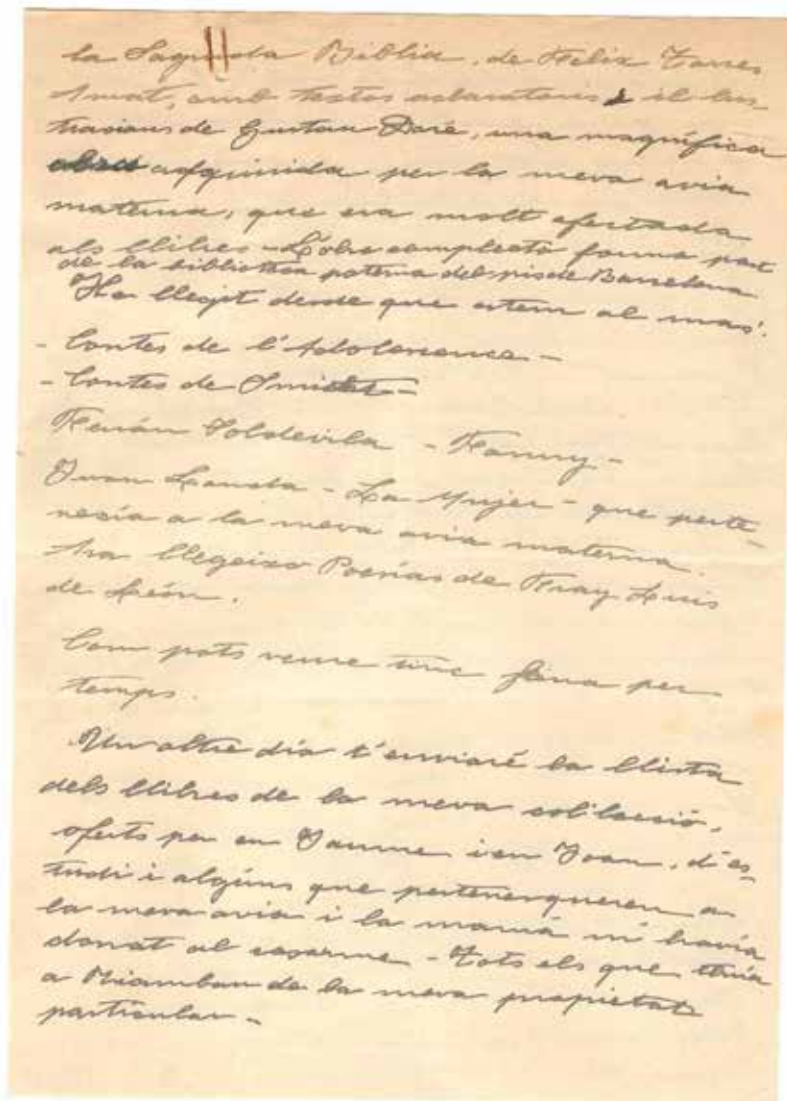 la Sagrada Biblia, de Felix Torres
Amat, amb textos aclaratoris i il·lus-
tracions de Gustau Doré, una magnífica
obra adquirida per la meva avia
materna, que era molt afectada
als llibres - L'obra completa forma part
de la biblioteca paterna del pis de Barcelona
He llegit desde que estem al mas:
- Contes de l'Adolescencia -
- Contes de
Ferrán Soldevila - Fanny -
Juan - La Mujer - que perte-
nesía a la meva avia materna.
Ara llegeixo Poesías de Fray Luis
de León.
Com pots veure tinc feina per
temps.
Un altre día t'enviaré la llista
dels llibres de la meva col·lecció,
oferts per en Jaume i en Joan, d'es-
tudi i algúns que pertenesqueren a
la meva avia i la mamá m'havía
donat al casarme - Tots els que tenía
a de la meva propietat
particular -